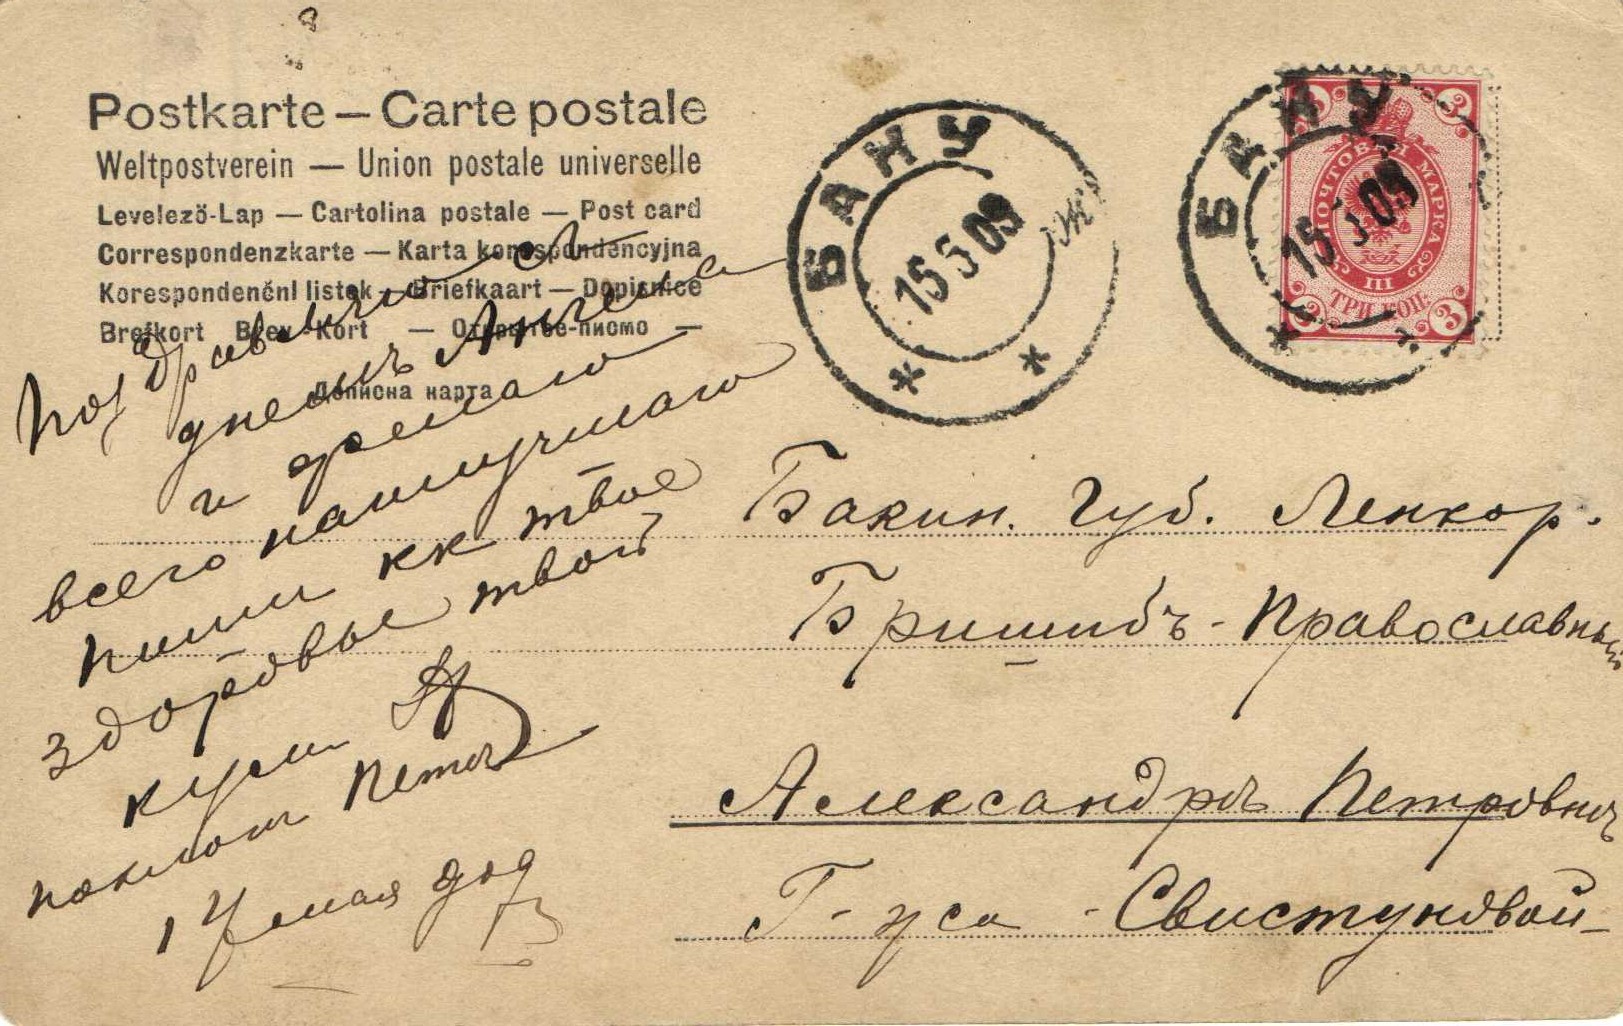 Postkarte — Carte postale
Weltpostverein — Union postale universelle
Levelező-Lap — Cartolina postale — Post card
Correspondenzkarte — Karta korespondencyjna
Korespondenční listek — Briefkaart — Dopisnice
Brefkort Brev-Kort — Открытое-писмо —
Дописна карта
БАКУ
15 5 09
БАКУ
15 5 09
3 3
ПОЧТОВАЯ МАРКА
III
ТРИ КОП.
3 3
Поздравляю с
днемъ Ангела
и желаю
всего наилучшаго
пиши кк твое
здоровье твой
поклон
мая
Бакин. Губ. Ленкор.
Пришибъ - Православный
Александръ Петровнъ
Г-жа - Свистуновой